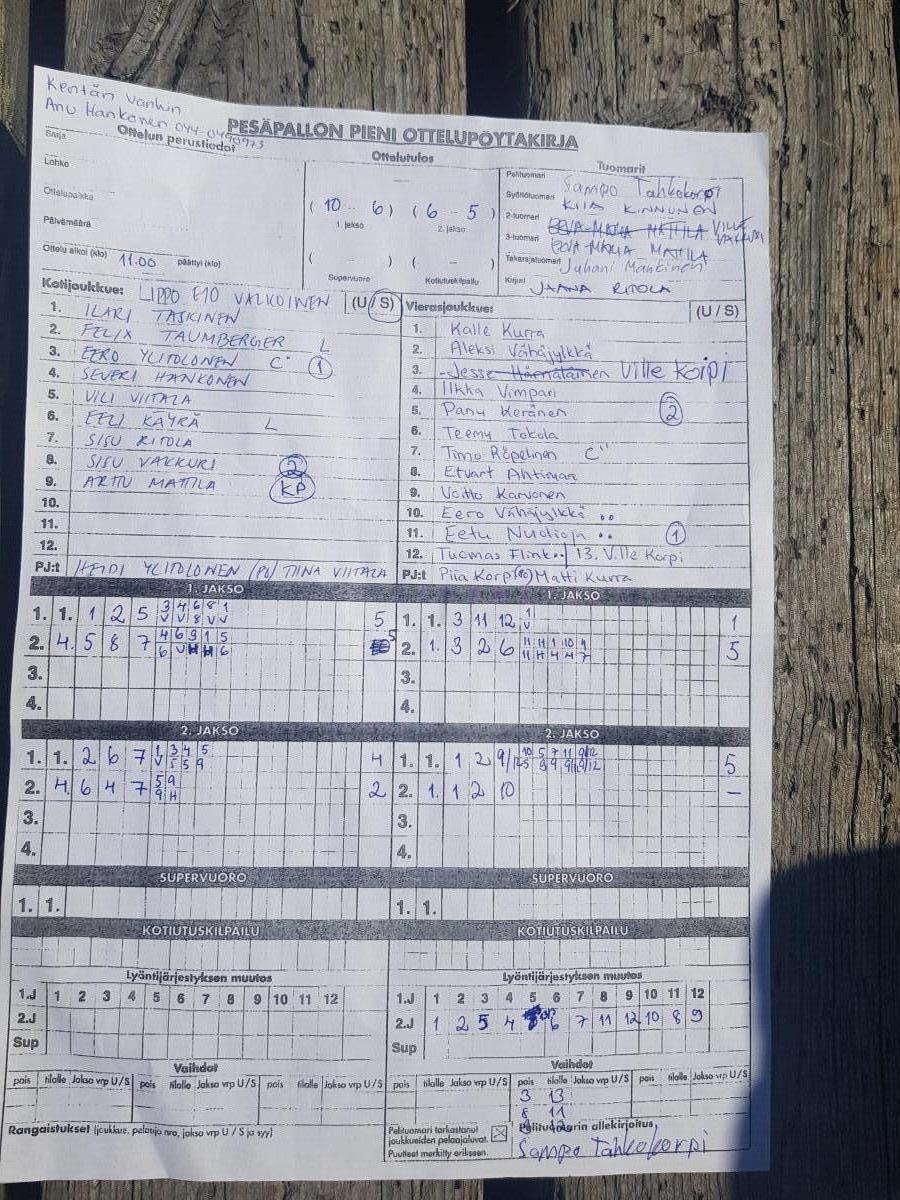 Kentän vanhin
Anu Hankonen 044-0490973
PESÄPALLON PIENI OTTELUPÖYTÄKIRJA
Ottelun perustiedot
Sarja
Lohko
Ottelupaikka
Päivämäärä
Ottelu alkoi (klo) 11.00 päättyi (klo)
Ottelutulos
( 10 - 6 ) ( 6 - 5 )
1. jakso 2. jakso
( - ) ( - )
Supervuoro Kotiutuskilpailu
Tuomarit
Pelituomari Sampo Tahkokorpi
Syöttötuomari KIIA KINNUNEN
2-tuomari EEVA-MAIJA MATTILA VILLE VAKKURI
3-tuomari EEVA-MAIJA MATTILA
Takarajatuomari Juhani Mantinen
Kirjuri JAANA RITOLA
Kotijoukkue: LIPPO E10 VALKOINEN (U / S)
1. ILARI TASKINEN
2. FELIX TAUMBERGER L
3. EERO YLITOLONEN C' 1
4. SEVERI HANKONEN
5. VILI VIITALA
6. EELI KÄYRÄ L
7. SISU RITOLA
8. SISU VAKKURI 2
9. ARTTU MATTILA KP
10.
11.
12.
PJ:t HEIDI YLITOLONEN (PJ) TIINA VIITALA
Vierasjoukkue: (U / S)
1. Kalle Kurra
2. Aleksi Vähäjylkkä
3. Jesse Hämäläinen Ville Korpi
4. Ilkka Vimpari
5. Panu Keränen 2
6. Teemu Tokola
7. Timo Röpelinen C"
8. Etvart Ahtimaa
9. Voitto Karvonen
10. Eero Vähäjylkkä ..
11. Eetu Nuolioja .. 1
12. Tuomas Flink .. 13. Ville Korpi
PJ:t Piia Korpi Matti Kurra
1. JAKSO
1. 1. 1 2 5 3 4 6 8 1 5
V V 8 V V
2. 4. 5 8 7 4 6 9 1 5 5
6 V H H 6
3.
4.
1. JAKSO
1. 1. 3 11 12 1 1
V
2. 1. 3 2 6 11 11 1 10 9 5
11 H 4 4 7
3.
4.
2. JAKSO
1. 1. 2 6 7 1 3 4 5 4
V 5 5 9
2. 4. 6 4 7 5 9 2
9 H
3.
4.
2. JAKSO
1. 1. 1 2 9/12 10 5 7 11 9/12 5
2. 1. 1 2 10 –
3.
4.
SUPERVUORO
1. 1.
SUPERVUORO
1. 1.
KOTIUTUSKILPAILU
KOTIUTUSKILPAILU
Lyöntijärjestyksen muutos
1.J 1 2 3 4 5 6 7 8 9 10 11 12
2.J
Sup
Lyöntijärjestyksen muutos
1.J 1 2 3 4 5 6 7 8 9 10 11 12
2.J 1 2 5 4 6 7 11 12 10 8 9
Sup
Vaihdot
pois tilalle Jakso vrp U / S pois tilalle Jakso vrp U / S pois tilalle Jakso vrp U / S
Vaihdot
pois tilalle Jakso vrp U / S pois tilalle Jakso vrp U / S pois tilalle Jakso vrp U / S
3 13
8 11
Rangaistukset (joukkue, pelaaja nro, jakso vrp U / S ja syy)
Pelituomari tarkastanut
joukkueiden pelaajaluvat.
Puutteet merkitty erikseen.
Pelituomarin allekirjoitus
Sampo Tahkokorpi